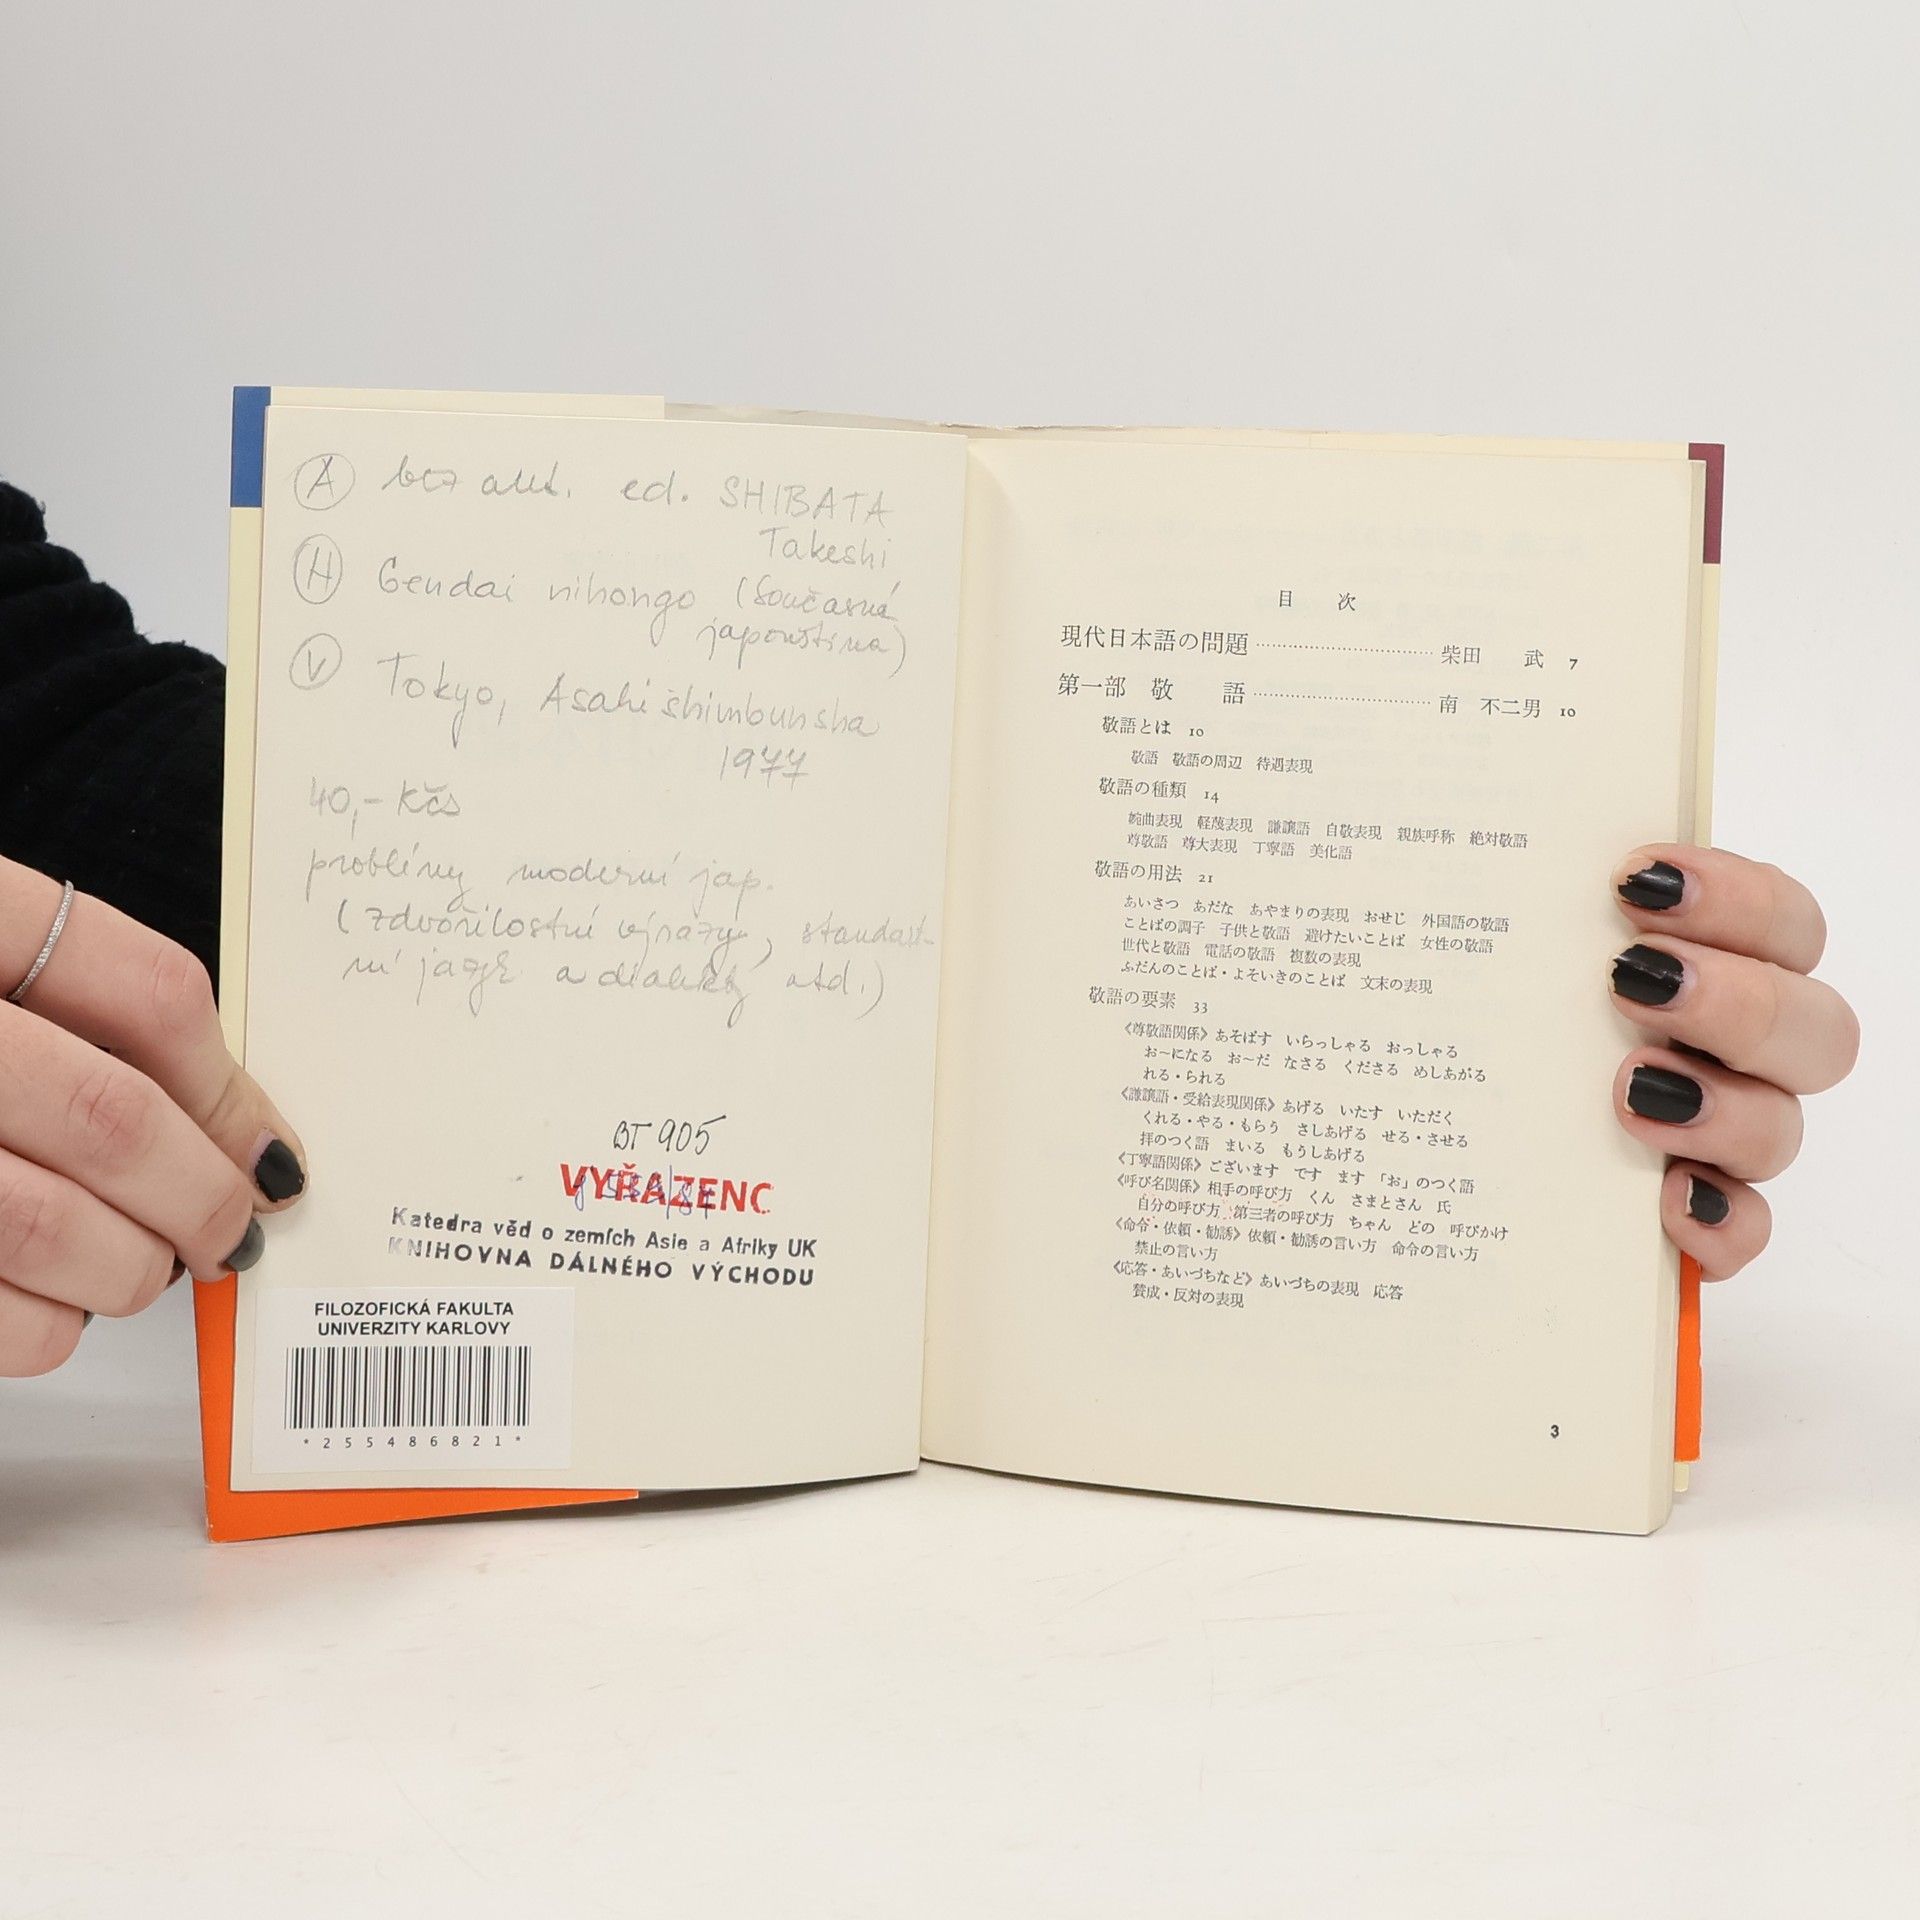 A bez aut. ed. SHIBATA
Takeshi
H Gendai nihongo (současná
japonština)
V Tokyo, Asahi shimbunsha
1977
40,- Kčs
problémy moderní jap.
(zdvořilostní výrazy, standart-
ní jazyk a dialekty atd.)
BT 905
VYŘAZENO
Katedra věd o zemích Asie a Afriky UK
KNIHOVNA DÁLNÉHO VÝCHODU
FILOZOFICKÁ FAKULTA
UNIVERZITY KARLOVY
*255486821*
目 次
現代日本語の問題……………………………柴田 武 7
第一部 敬 語……………………………南 不二男 10
敬語とは 10
敬語 敬語の周辺 待遇表現
敬語の種類 14
婉曲表現 軽蔑表現 謙譲語 自敬表現 親族呼称 絶対敬語
尊敬語 尊大表現 丁寧語 美化語
敬語の用法 21
あいさつ あだな あやまりの表現 おせじ 外国語の敬語
ことばの調子 子供と敬語 避けたいことば 女性の敬語
世代と敬語 電話の敬語 複数の表現
ふだんのことば・よそいきのことば 文末の表現
敬語の要素 33
《尊敬語関係》あそばす いらっしゃる おっしゃる
お〜になる お〜だ なさる くださる めしあがる
れる・られる
《謙譲語・受給表現関係》あげる いたす いただく
くれる・やる・もらう さしあげる せる・させる
拝のつく語 まいる もうしあげる
《丁寧語関係》ございます です ます 「お」のつく語
《呼び名関係》相手の呼び方 くん さまとさん 氏
自分の呼び方 第三者の呼び方 ちゃん どの 呼びかけ
《命令・依頼・勧誘》依頼・勧誘の言い方 命令の言い方
禁止の言い方
《応答・あいづちなど》あいづちの表現 応答
賛成・反対の表現
3